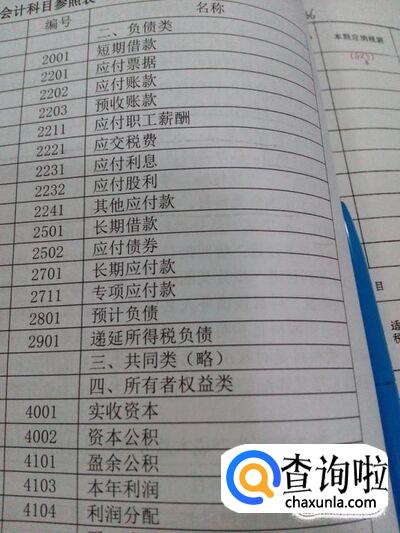 会计科目参照表
编号 名称
二、负债类
2001 短期借款
2201 应付票据
2202 应付账款
2203 预收账款
2211 应付职工薪酬
2221 应交税费
2231 应付利息
2232 应付股利
2241 其他应付款
2501 长期借款
2502 应付债券
2701 长期应付款
2711 专项应付款
2801 预计负债
2901 递延所得税负债
三、共同类（略）
四、所有者权益类
4001 实收资本
4002 资本公积
4101 盈余公积
4103 本年利润
4104 利润分配
目
适
税
查询啦
chaxunla.com